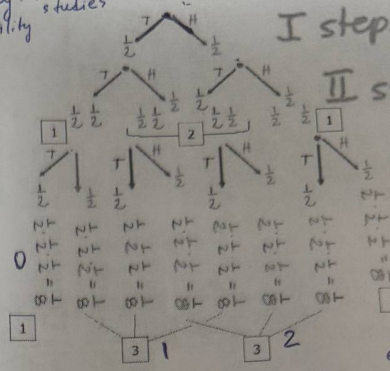 studies
ility
T H
1/2 1/2
I step
T H T H
1/2 1/2 1/2 1/2 1/2 1/2 1/2 1/2
II s
1 2 1
T T H T H T H
1/2 1/2 1/2 1/2 1/2 1/2 1/2 1/2
1/2 · 1/2 · 1/2 = 1/8
1/2 · 1/2 · 1/2 = 1/8
1/2 · 1/2 · 1/2 = 1/8
1/2 · 1/2 · 1/2 = 1/8
1/2 · 1/2 · 1/2 = 1/8
1/2 · 1/2 · 1/2 = 1/8
1/2 · 1/2 · 1/2 = 1/8
0
1 3 1 3 2